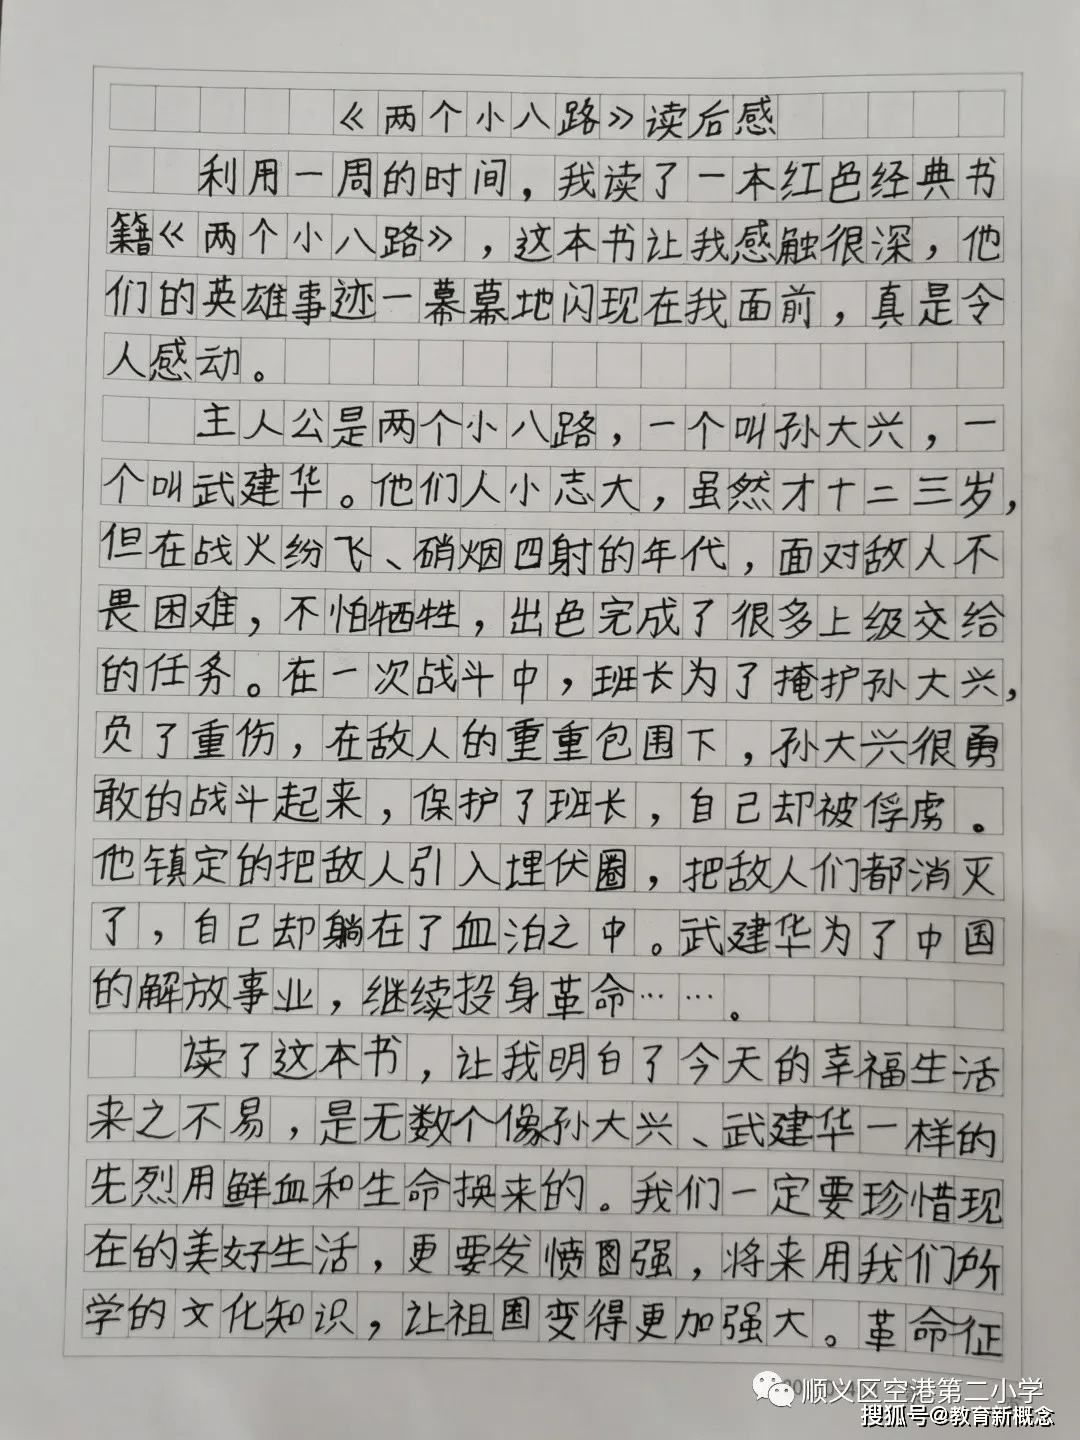 《两个小八路》读后感
利用一周的时间，我读了一本红色经典书
籍《两个小八路》，这本书让我感触很深，他
们的英雄事迹一幕幕地闪现在我面前，真是令
人感动。
主人公是两个小八路，一个叫孙大兴，一
个叫武建华。他们人小志大，虽然才十二三岁，
但在战火纷飞、硝烟四射的年代，面对敌人不
畏困难，不怕牺牲，出色完成了很多上级交给
的任务。在一次战斗中，班长为了掩护孙大兴，
负了重伤，在敌人的重重包围下，孙大兴很勇
敢的战斗起来，保护了班长，自己却被俘虏。
他镇定的把敌人引入埋伏圈，把敌人们都消灭
了，自己却躺在了血泊之中。武建华为了中国
的解放事业，继续投身革命……。
读了这本书，让我明白了今天的幸福生活
来之不易，是无数个像孙大兴、武建华一样的
先烈用鲜血和生命换来的。我们一定要珍惜现
在的美好生活，更要发愤图强，将来用我们所
学的文化知识，让祖国变得更加强大。革命征
顺义区空港第二小学
搜狐号@教育新概念